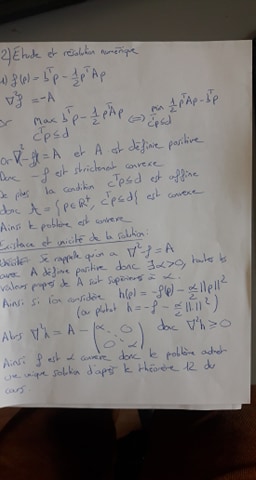 2) Etude et résolution numérique
1) f(p) = bᵀp - 1/2 pᵀAp
∇²f = -A
Or max bᵀp - 1/2 pᵀAp ⟺ min 1/2 pᵀAp - bᵀp
Cᵀp ≤ d Cᵀp ≤ d
Or -∇²f = A et A est définie positive
Donc -f est strictement convexe
De plus la condition Cᵀp ≤ d est affine
donc = {p ∈ , Cᵀp ≤ d} est convexe
Ainsi le problème est convexe
Existence et unicité de la solution:
Se rappelle qu'on a ∇²-f = A
avec A définie positive donc ∃α>0, toutes les
valeurs propres de A sont supérieures à α.
Ainsi si l'on considère h(p) = -f(p) - α/2 ||p||²
(ou plutôt h = -f - α/2 ||.||²)
Alors ∇²h = A - (α 0
0 α) donc ∇²h ≥ 0
Ainsi f est α convexe donc le problème admet
une unique solution d'après le théorème 12 du
cours